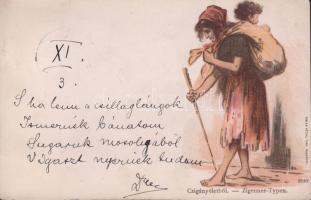 XI
3.
S ha lenn a csillaglángok
Ismernék bánatom
Sugaruk mosolyából
Vigaszt nyernék tudom
Czigányéletből. — Zigeuner-Typen.